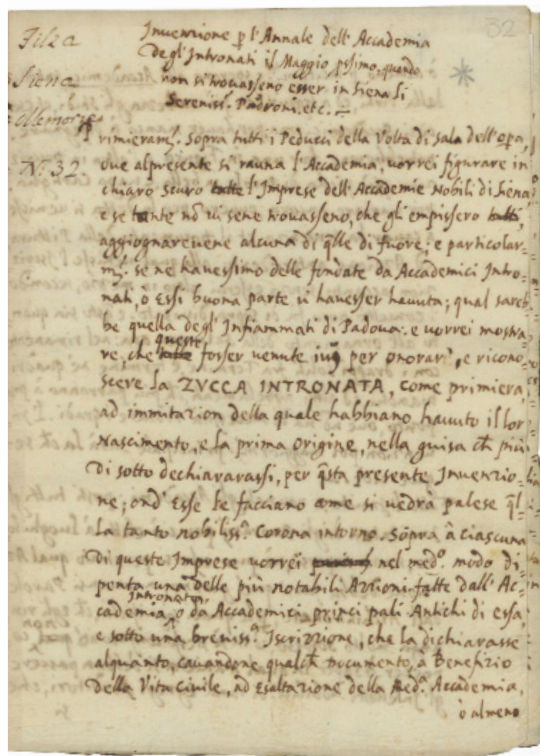 32
Filza
Siena
Memorie
N.º 32
Invenzione p l'Annale dell'Accademia
degl'Intronati il Maggio pssimo, quando
non si trovasseno esser in Siena li
Sereniss.i Padroni, etc.
Primieram.te Sopra tutti i Peducci della Volta di Sala dell'opa,
ove al presente si rauna l'Accademia, vorrei figurare in
chiaro scuro tutte l'Imprese dell'Accademie Nobili di Siena
e se tante nō vi sene trovasseno, che gli empissero tutti,
aggiognarevene alcuna di q̄lle di fuore: e particolar=
m.te se ne havessimo delle fondate da Accademici Intro=
nati, o Essi buona parte vi havesser havuta; qual sareb=
be quella degl'Infiammati di Padova: e vorrei mostra
re, che tutte queste fosser venute ivi per onorar', e ricono=
scere la ZVCCA INTRONATA, come primiera,
ad immitazion della quale habbiano havuto il lor
Nascimento, e la prima origine, nella guisa ch̄ più
di sotto dechiararassi, per q̄sta presente Invenzio=
ne; ond'Esse le facciano come si vedrà palese q̄l=
la tanto nobiliss.a Corona intorno. Sopra à ciascuna
di queste Imprese vorrei nel med.o modo di=
penta una delle più notabili Azzioni fatte dall'Ac=
cademia Intronata, o da Accademici principali Antichi di essa,
e sotto una breviss.a Iscrizzione, che la dichiarasse
alquanto, cavandone qualch̄ Documento, à Benefizio
della Vita Civile, ad Esaltazione della Med.a Accademia,
ò almeno